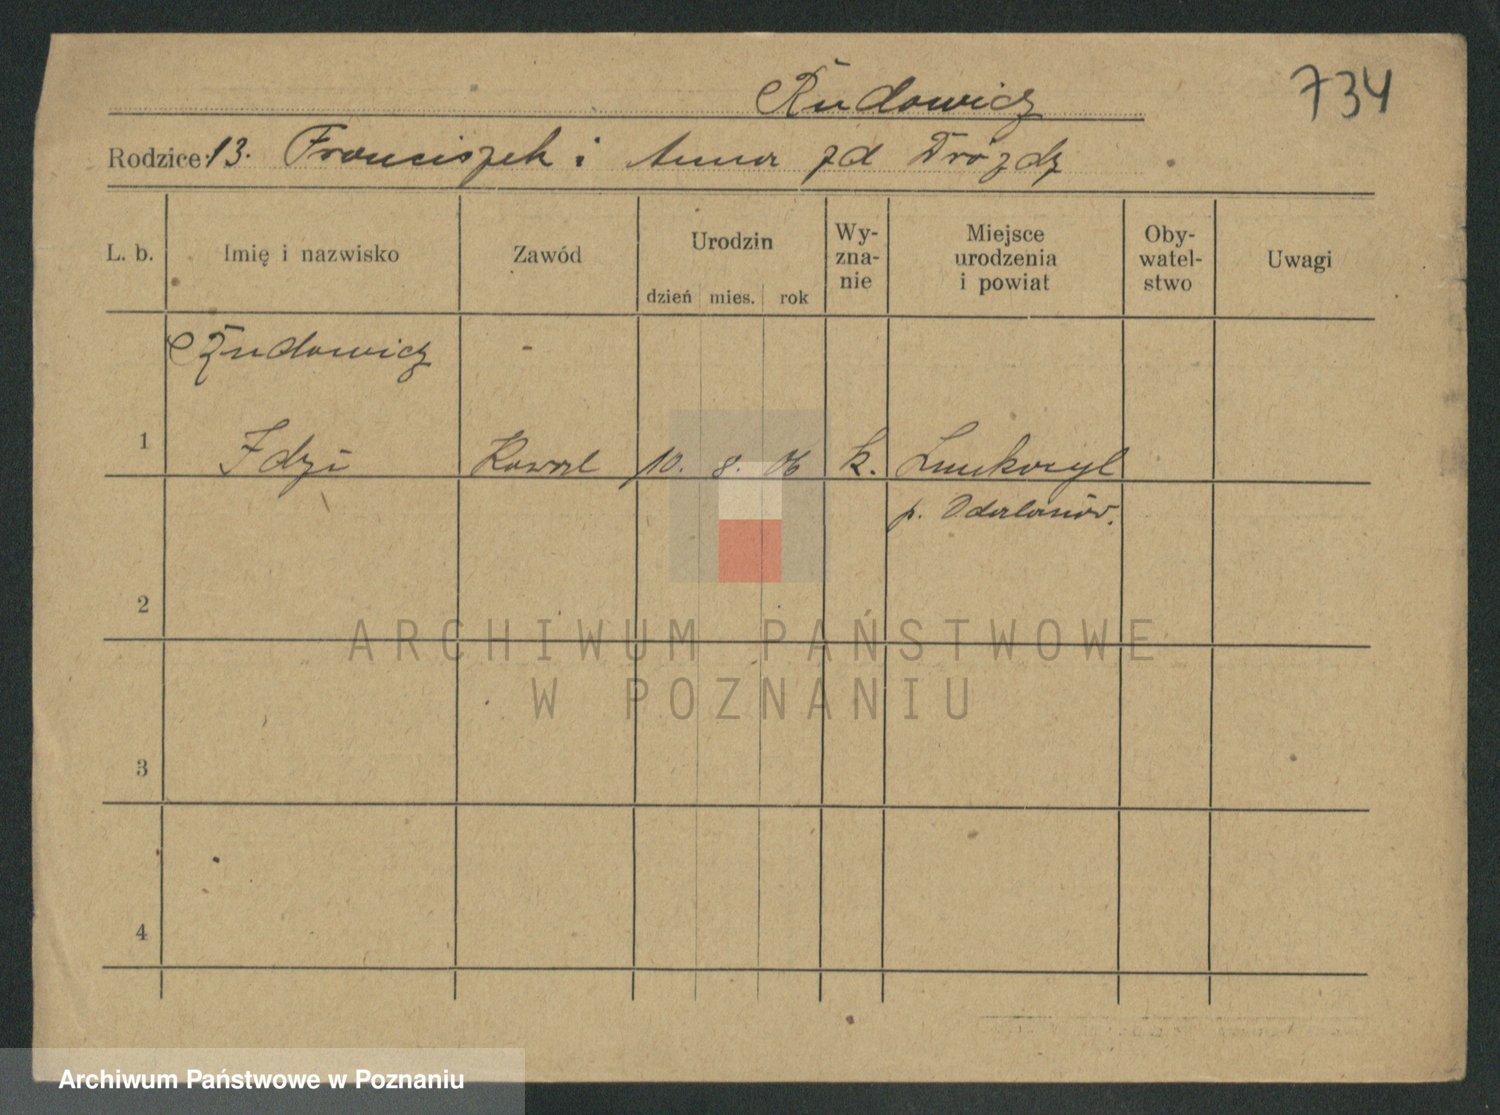 Rudowicz
734
Rodzice: 13. Franciszek i Anna zd Drozdz
L. b.
Imię i nazwisko
Zawód
Urodzin
dzień mies. rok
Wy-
zna-
nie
Miejsce
urodzenia
i powiat
Oby-
watel-
stwo
Uwagi
Rudowicz
1 Idzi Kowal 10. 8. 06 k.
p. Odolanów.
2
3
4
ARCHIWUM PAŃSTWOWE
W POZNANIU
Archiwum Państwowe w Poznaniu